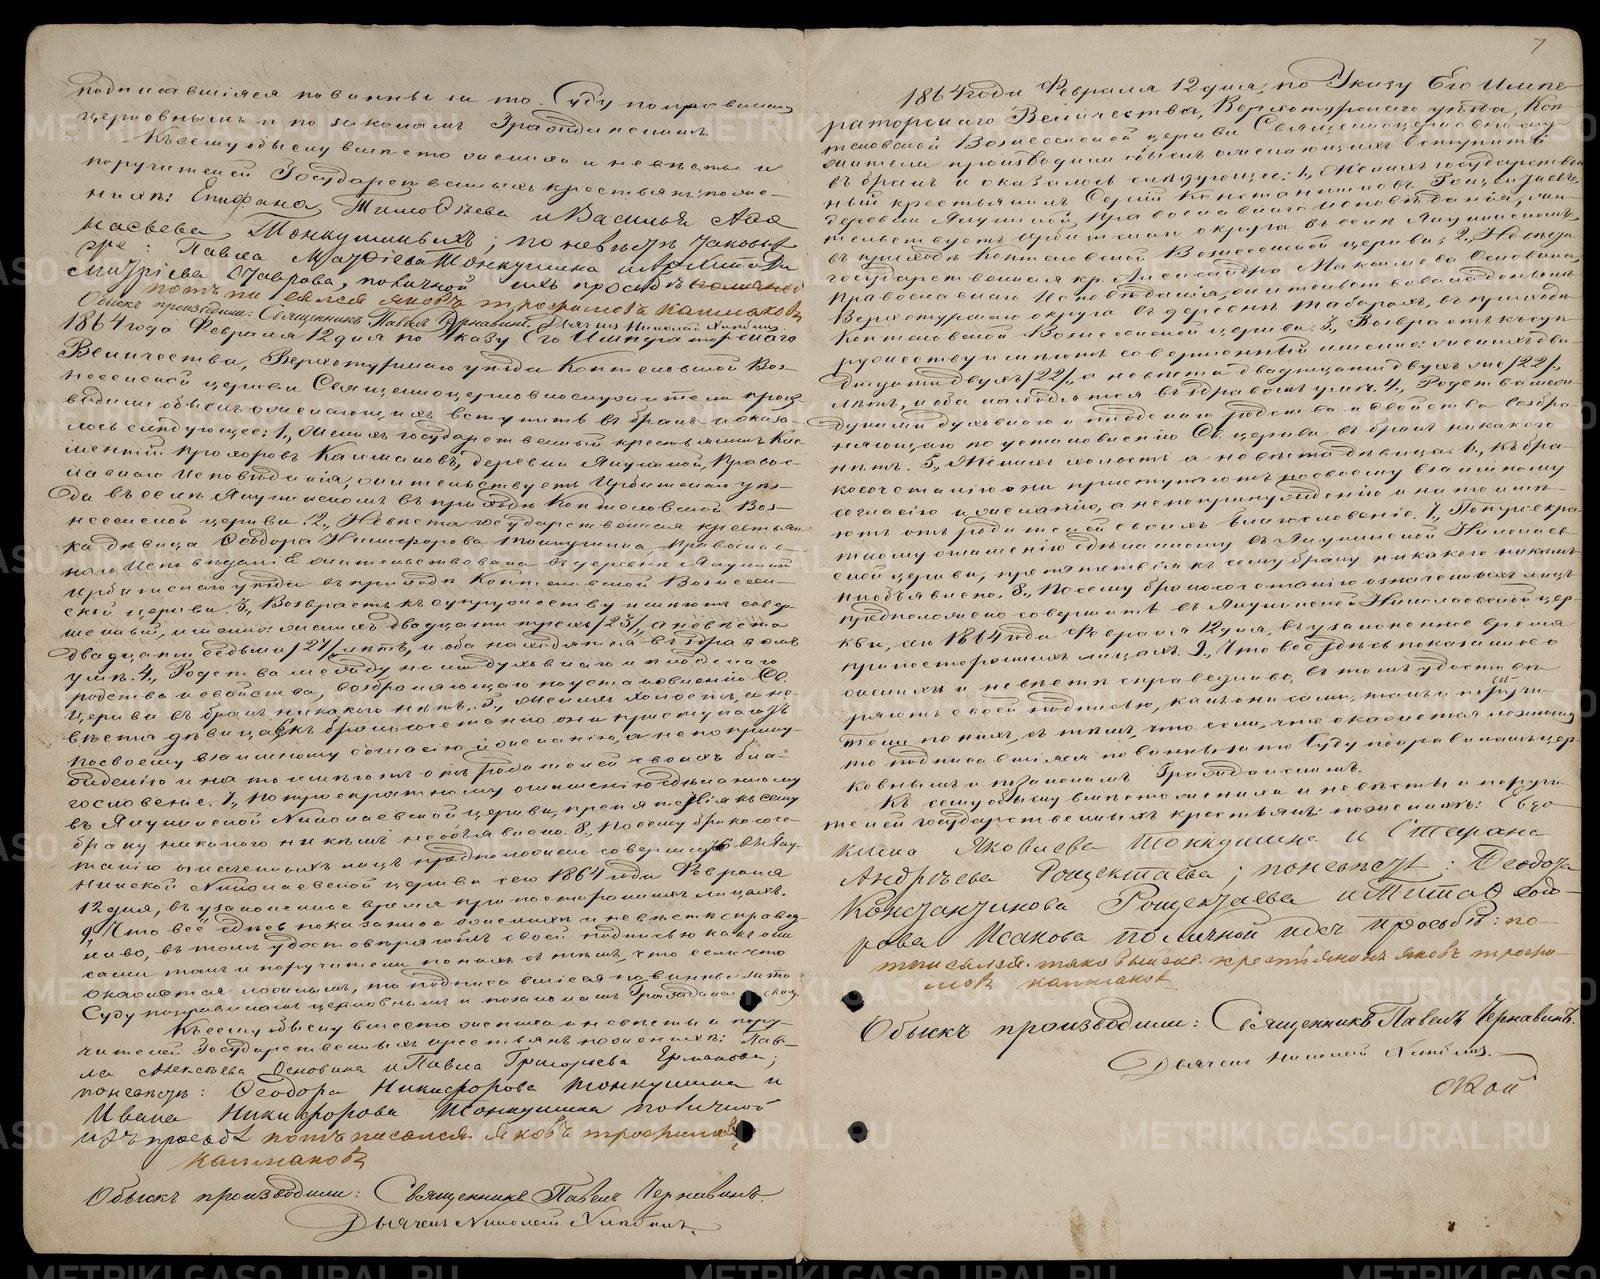 подписавшiяся повинны за то Суду по правиламъ
церковнымъ и по законамъ Гражданскимъ.
Къ сему обыску вмѣсто жениха и невѣсты и
поручителей Государственныхъ крестьянъ: по же-
нихѣ: Епифана Тимофѣева и Василья Афа
насьева Тонкушиныхъ; по невѣстѣ
Павла Матфiева Тонкушина и
Дмитрiева Озаврова, по личной ихъ прозьбѣ
потписался яковъ трофимовъ калмаковъ
Обыскъ производили: Священникъ Павелъ Чернавинъ, Дьячекъ Николай Хлыбинъ.
1864 года Февраля 12 дня по Указу Его Императорскаго
Величества, Верхотурскаго уѣзда Коптеловской Воз-
несенской церкви Священноцерковнослужители произ
водили обыскъ о желающихъ вступить въ бракъ и оказа-
лось слѣдующее: 1., Женихъ государственный крестьянинъ
Прохоровъ Калмаковъ, деревни Ялунной, Правос-
лавнаго Исповѣданiя, жительствуетъ Ирбитскаго уѣз-
да въ селѣ Ялунинскомъ въ приходѣ Коптеловской Воз-
несенской церкви. 2., Невѣста государственная крестьян-
ка дѣвица Феодора Никифорова Тонкушина, Православ-
наго Исповѣданiя жительствовала въ деревни Ялунной
Ирбитскаго уѣзда въ приходѣ Коптеловской Вознесен-
ской церкви. 3., Возрастъ къ супружеству имѣютъ совер-
шенный, именно: женихъ двадцати трехъ /23/, а невѣста
двадцати седьми /27/ лѣтъ, и оба находятся въ здравомъ
умѣ. 4., Родства между ними духовнаго и плодскаго
родства и свойства, возбраняющаго по установленiю Св.
церкви въ бракъ, никакого нѣтъ. 5., Женихъ холостъ, а не-
вѣста дѣвица. 6, къ бракосочетанiю они приступаютъ
по своему взаимному согласiю и желанiю, а не по прину-
жденiю и на то имѣютъ отъ родителей своихъ бла-
гословенiе. 7., По троекратному оглашенiю сдѣланному
въ Ялунинской Николаевской церкви, препятствiя къ сему
браку никакого никѣмъ не объявлено. 8., По сему бракосоче-
танiю означенныхъ лицъ предположено совершить въ Ялу-
нинской Николаевской церкви сего 1864 года Февраля
12 дня, въ узаконенное время при постороннихъ лицахъ.
9, Что всё здѣсь показанное о женихѣ и невѣстѣ справед-
ливо, въ томъ удостовѣряютъ своей подписью какъ они
сами такъ и поручители по нихъ съ тѣмъ, что если что
окажется ложнымъ, то подписавшiеся повинны за то
Суду по правиламъ церковнымъ и по законамъ Гражданскимъ.
Къ сему обыску вмѣсто жениха и невѣсты и пору-
чителей Государственныхъ крестьянъ по женихѣ: Пав-
ла Алексѣева Основина и Павла Григорьева Ермакова;
по невѣстѣ: Феодора Никифорова Тонкушина и
Ивана Никифорова Тонкушина по личной
ихъ прозьбѣ потъписался яковъ трофимовъ
калмаковъ
Обыскъ производили: Священникъ Павелъ Чернавинъ.
Дьячекъ Николай Хлыбинъ.
7
1864 года Февраля 12 дня, по Указу Его Импе-
раторскаго Величества, Верхотурскаго уѣзда, Коп-
теловской Вознесенской церкви Священноцерковнослу-
жители производили обыскъ о желающихъ вступить
въ бракъ и оказалось слѣдующее: 1., Женихъ государствен-
ный крестьянинъ Сергiй Константиновъ Рощектаевъ,
деревни Ялунной, Православнаго исповѣданiя, жи-
тельствуетъ Ирбитскаго округа въ селѣ Ялунинскомъ,
въ приходѣ Коптеловской Вознесенской церкви; 2., Невѣста
государственная кр. Александра Максимова Основина,
Православнаго Исповѣданiя, жительствовала доныне
Верхотурскаго округа въ деревни Таборахъ, въ приходѣ
Коптеловской Вознесенской церкви. 3., Возврастъ къ суп-
ружеству имѣютъ совершенный именно: женихъ два-
дцати двухъ /22/, а невѣста двадцати двухъ же /22/,
лѣтъ, и оба находятся въ здравомъ умѣ. 4., Родства меж-
ду ними духовнаго и плодскаго родства и свойства возбра-
няющаго по установленiю Св. церкви въ бракъ никакого
нѣтъ. 5, Женихъ холостъ а невѣста дѣвица. 6., Къ бра-
косочетанiю они приступаютъ по своему взаимному
согласiю и желанiю, а не по принужденiю и на то имѣ-
ютъ отъ родителей своихъ благословенiе. 7., По троекра-
тному оглашенiю сдѣланному въ Ялунинской Николаев-
ской церкви, препятствiя къ сему браку никакого никѣмъ
необъявлено. 8., По сему бракосочетанiю означенныхъ лицъ
предположено совершить въ Ялунинской Николаевской цер-
кви, сего 1864 года Февраля 12 дня, въ узаконенное время
при постороннихъ лицахъ. 9., Что всё здѣсь показанное о
женихѣ и невѣстѣ справедливо, въ томъ удостовѣ-
ряютъ своей подписью, какъ они сами, такъ и поручи-
тели по нихъ, съ тѣмъ, что если, что окажется ложнымъ
то подписавшiяся повинны за то Суду по правиламъ цер-
ковнымъ и по законамъ Гражданскимъ.
Къ сему обыску вмѣсто жениха и невѣсты и поручи-
телей государственныхъ крестьянъ: по женихѣ: Евдо-
кима Яковлева Тонкушина и Стефана
Андрѣева Рощектаева; по невѣстѣ: Феодора
Константинова Рощектаева и Тита Федо-
рова Исакова по личной ихъ прозьбѣ: по
тписался. крестьянинъ яковъ трофи-
мовъ калмаковъ
Обыскъ производили: Священникъ Павелъ Чернавинъ.
Дьячекъ Николай Хлыбинъ.